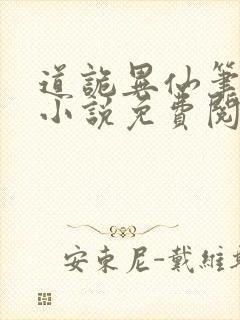 道詭異仙筆
小說免費閱
安東尼-戴維斯